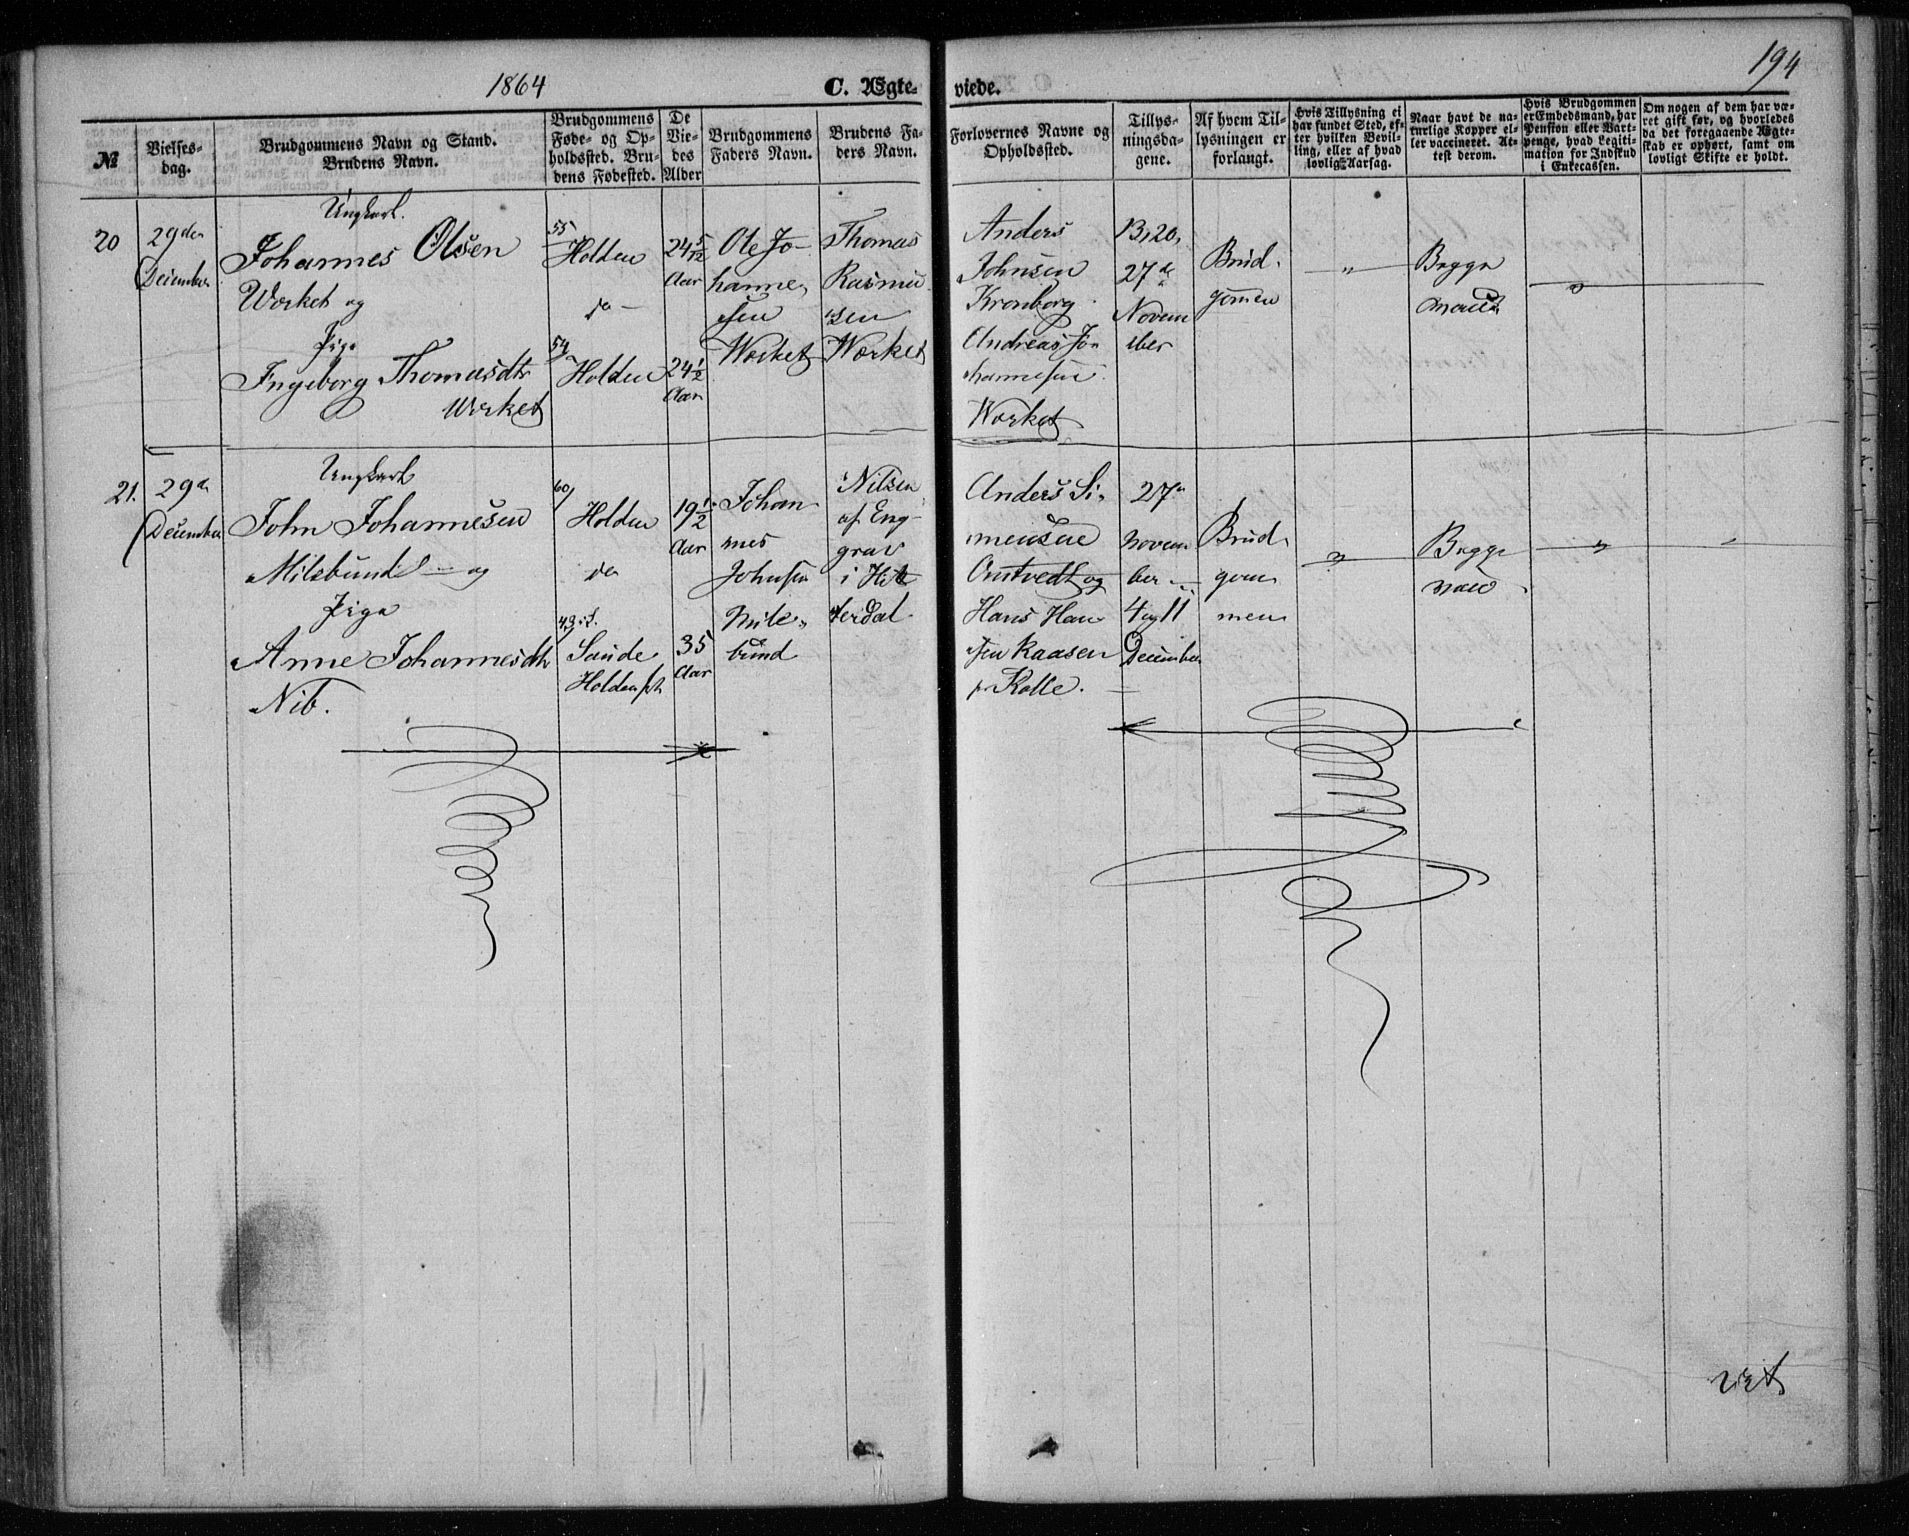 1864
C. Ægteviede.
194
№
Vielsesdag.
Brudgommens Navn og Stand.
Brudens Navn.
Brudgommens
Føde- og Op-
holdssted. Bru-
dens Fødested.
De
Vie-
des
Alder
Brudgommens
Faders Navn.
Brudens Fa-
ders Navn.
Forlovernes Navne og
Opholdssted.
Tillys-
ningsda-
gene.
Af hvem Til-
lysningen er
forlangt.
Hvis Tillysning ei
har fundet Sted, ef-
ter hvilken Bevil-
ling, eller af hvad
lovlig Aarsag.
Naar havt de na-
turlige Kopper el-
ler vaccineret. At-
test derom.
Hvis Brudgommen
er Embedsmand, har
Pension eller Vart-
penge, hvad Legiti-
mation for Indskud
i Enkecassen.
Om nogen af dem har væ-
ret gift før, og hvorledes
da det foregaaende Ægte-
skab er ophørt, samt om
lovligt Skifte er holdt.
20
29de
December
Ungkarl.
Johannes Olsen
Værket og
Pige
Ingeborg Thomasdtr
Værket
55
Holden
do
54
Holden
24 5/12
Aar
24 1/2
Aar
Ole Jo-
hanne
sen
Værket
Thomas
Rasmu
sen
Værket
Anders
Johnsen
Kronborg
Andreas Jo
hannesen
Værket
13, 20,
27de
Novem
ber
Brud-
gomen
"
Begge
vaccd
"
21.
29de
December
Ungkarl
John Johannesen
Milebund og
Pige
Anne Johannesdtr
Nib.
60
Holden
do
49
Saude
Holden
19 1/2
Aar
35
Aar
Johan
nes
Johnsen
Mile-
bund
Nilsen
af Eng-
grav
i Hit
terdal
Anders Si-
mensen
Omtvedt og
Hans Han
sen Kaasen
Kolle.
27de
Novem
ber
4 og 11
December
Brud-
gom
men
"
Begge
vacc
"
"